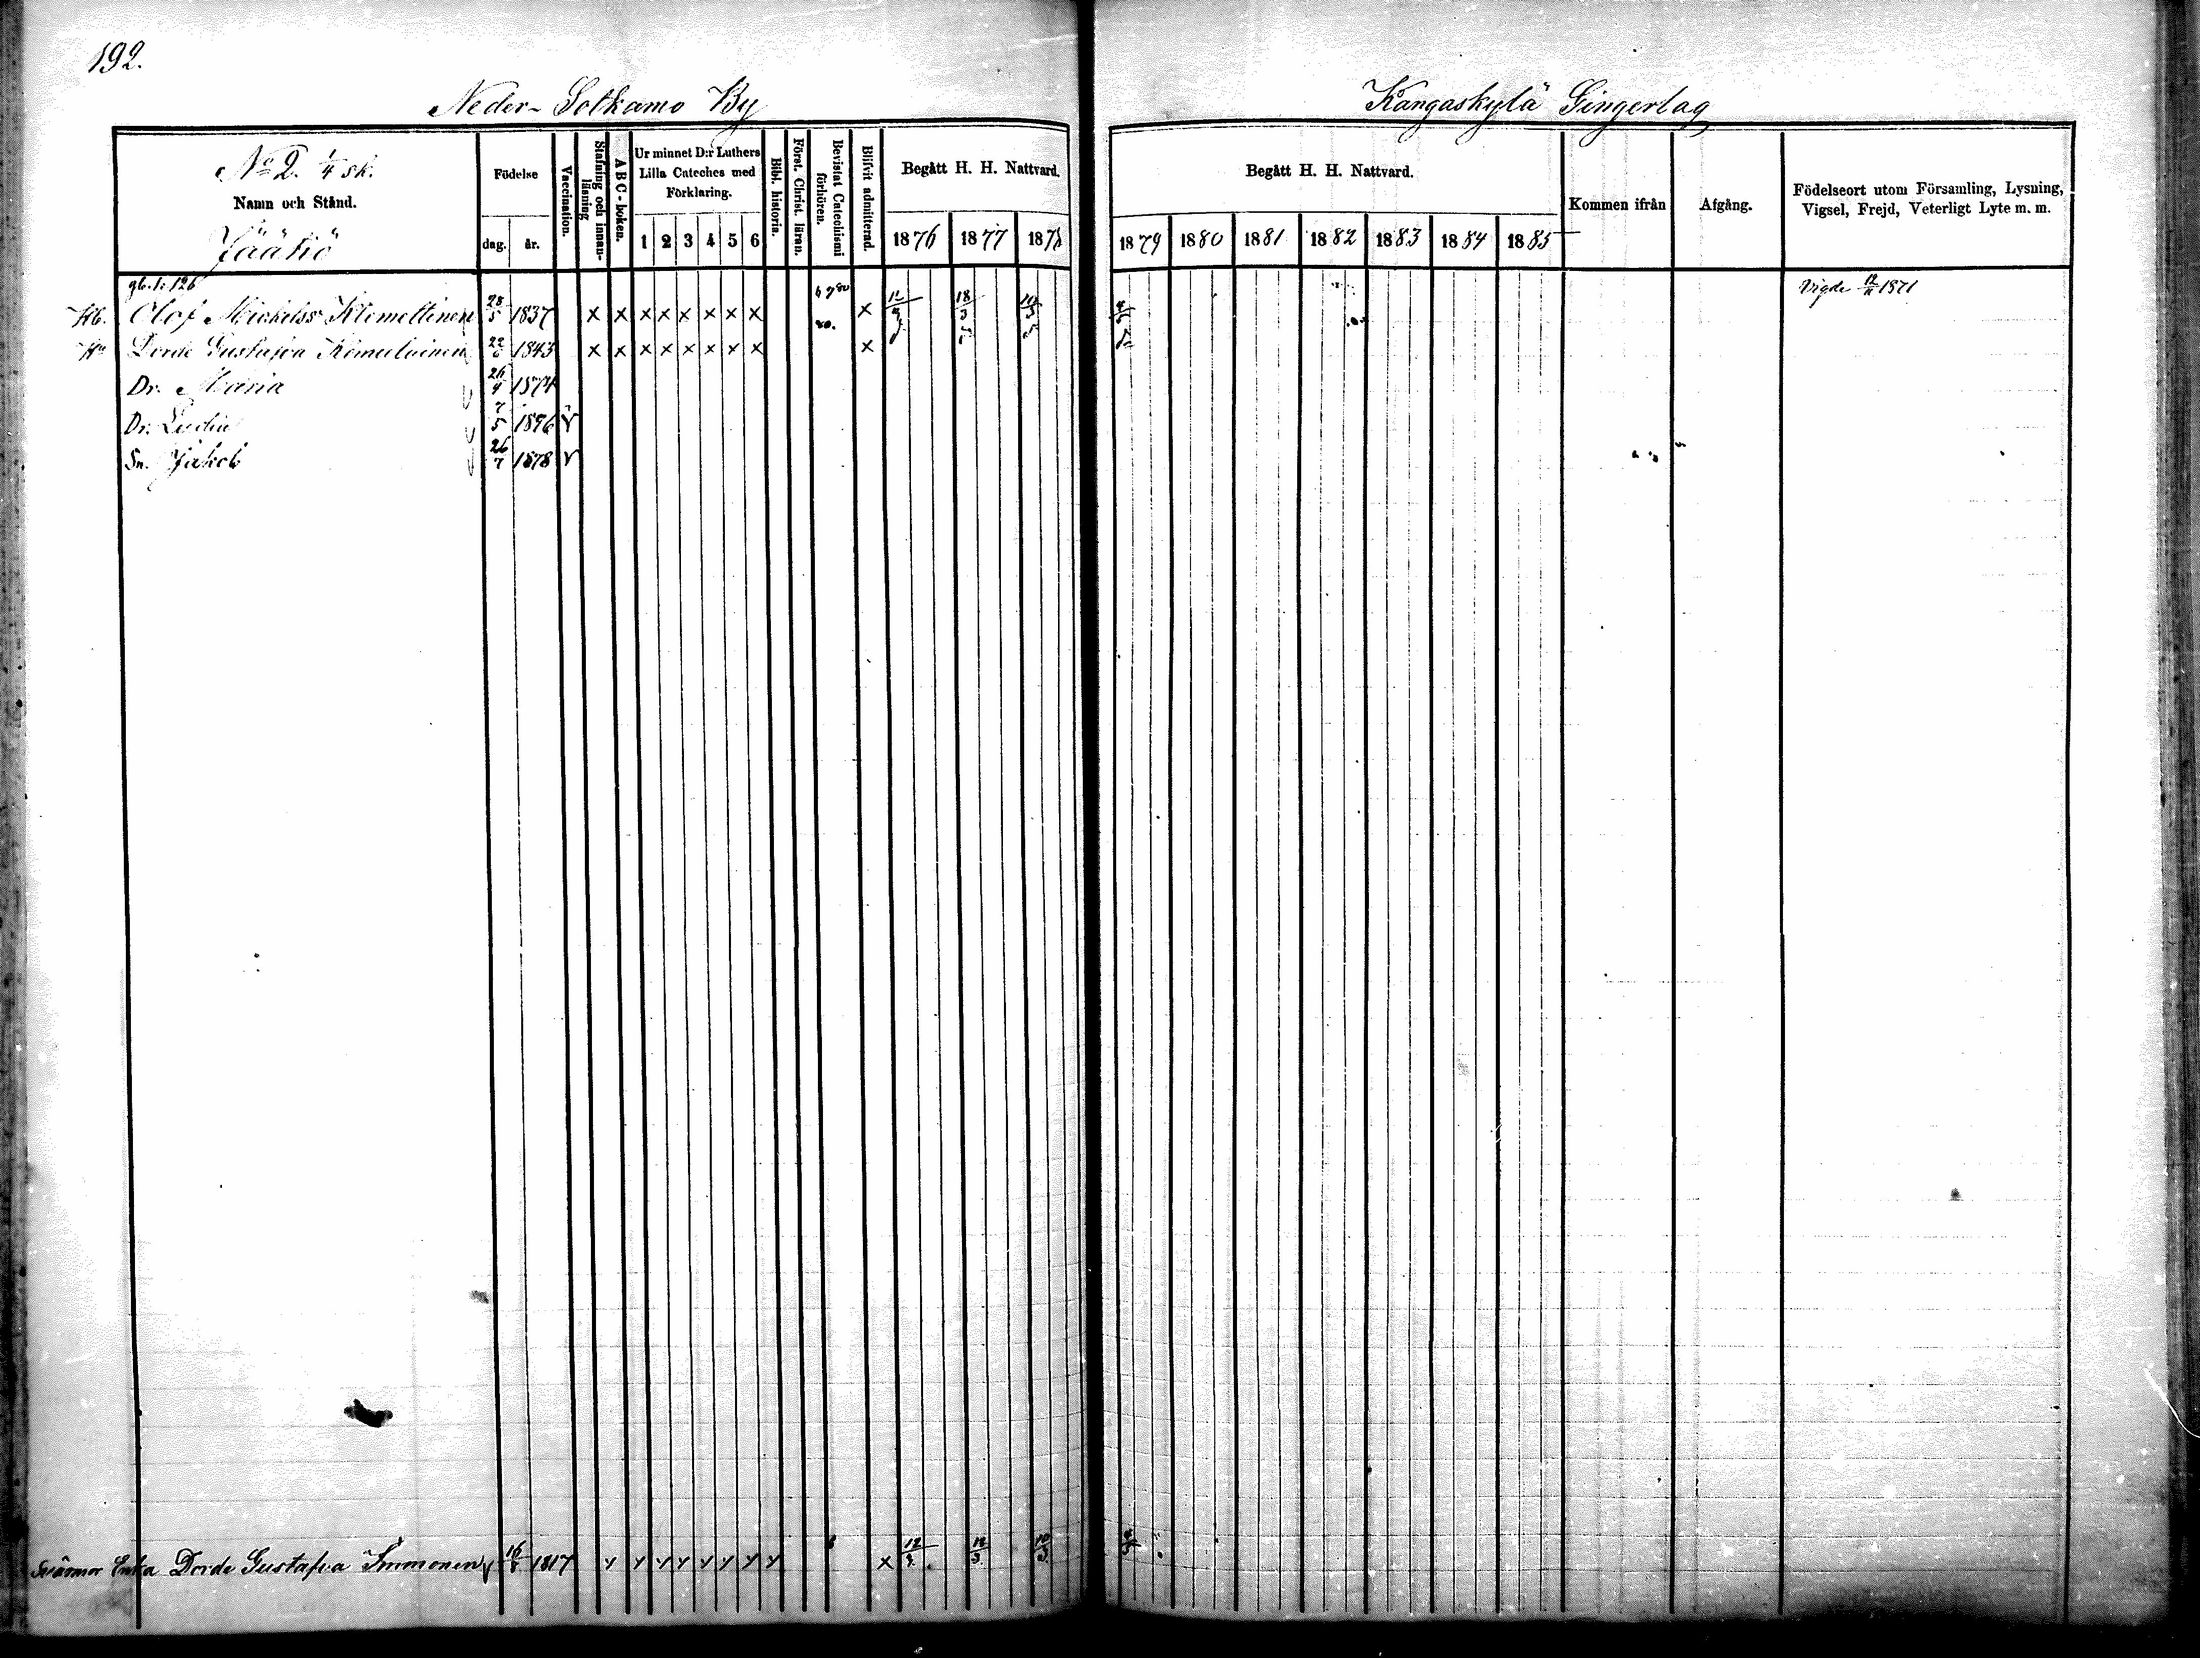 192.
Neder-Sotkamo By
Kangaskylä Gingerlag
No 2. 1/4 sk.
Namn och Stånd.
Födelse
dag.
år.
Vaccination.
Stafning och innan-läsning
ABC-boken.
Ur minnet D:r Luthers
Lilla Cateches med
Förklaring.
1 2 3 4 5 6
Bibl. historia.
Först. Christ. läran.
Bevistat Catechismi förhören.
Blifvit admitterad.
Begått H. H. Nattvard.
1876 1877 1878
Begått H. H. Nattvard.
1879 1880 1881 1882 1883 1884 1885
Kommen ifrån
Afgång.
Födelseort utom Församling, Lysning,
Vigsel, Frejd, Veterligt Lyte m. m.
126
Olof Michelss. Klemettinen 28/5 1837 x x x x x x x x x 18/3
Vigde 1871
Dorde Gustafva Kemulainen 1843 x x x x x x x x x
Dr. Maria 26/4 1874
Dr. Lydia 7/5 1876 v
Sn. Jakob 26/7 1878 v
Svärmor Enka Dorde Gustafva Immonen 1817 x 12/3 18/3 10/3